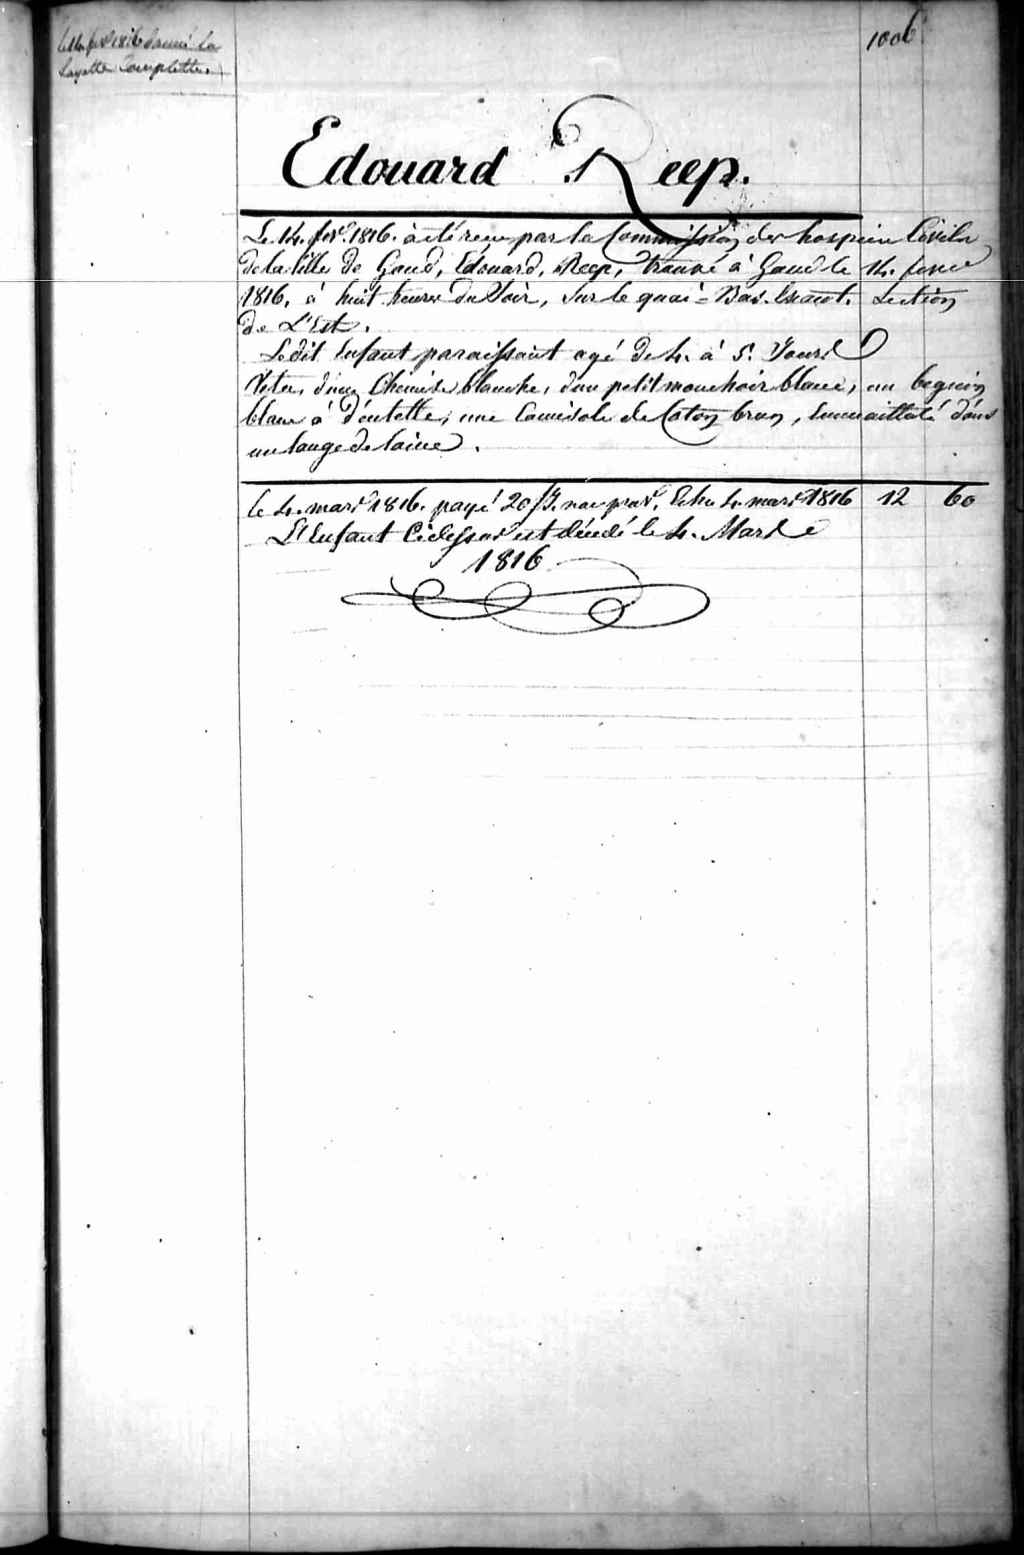 le 14 fev. 1816 donné la
Layette Complette.
1006
Edouard Reep.
Le 14. fevr. 1816. à été recu par la Commission des hospices Civils
de la Ville de Gand, Edouard, Reep, trouvé à Gand le 14. fevrier
1816, à huit heures du Soir, Sur le quai - Bas-Escaut. Section
de L'Est.
Le dit Enfant paraissant agé de 4. à 5. Jours
Vetu, d'une Chemise blanche, d'un petit mouchoir blanc, un beguin
blanc à dentelle, une Camisole de Coton brun, Emmailloté dans
un lange de laine.
le 4. mars 1816. payé 20 Echu 4. mars 1816 12 60
L'Enfant Cidessus est décédé le 4. Mars
1816